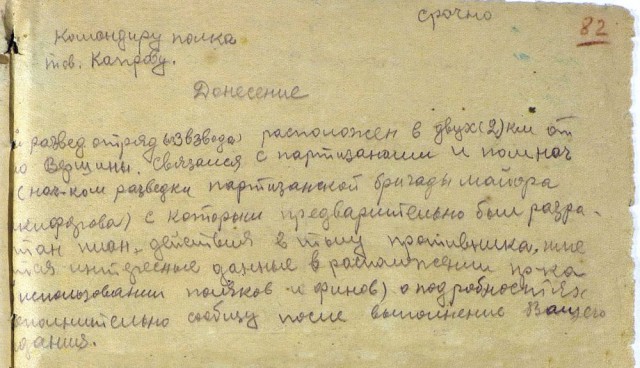 срочно
82
Командиру полка
тов. Капрову.
Донесение
развед отряд (3 взвода) расположен в двух (2) км от
Вершины. Связался с партизанами и пом нач
(нач-ком разведки партизанской бригады майора
кифорова) с которым предварительно был разра-
тан план, действия в тылу противника, име
тся интересные данные в расположении пр-ка
использовании поляков и финов) о подробностях
ополнительно сообщу после выполнение Вашего
дания.